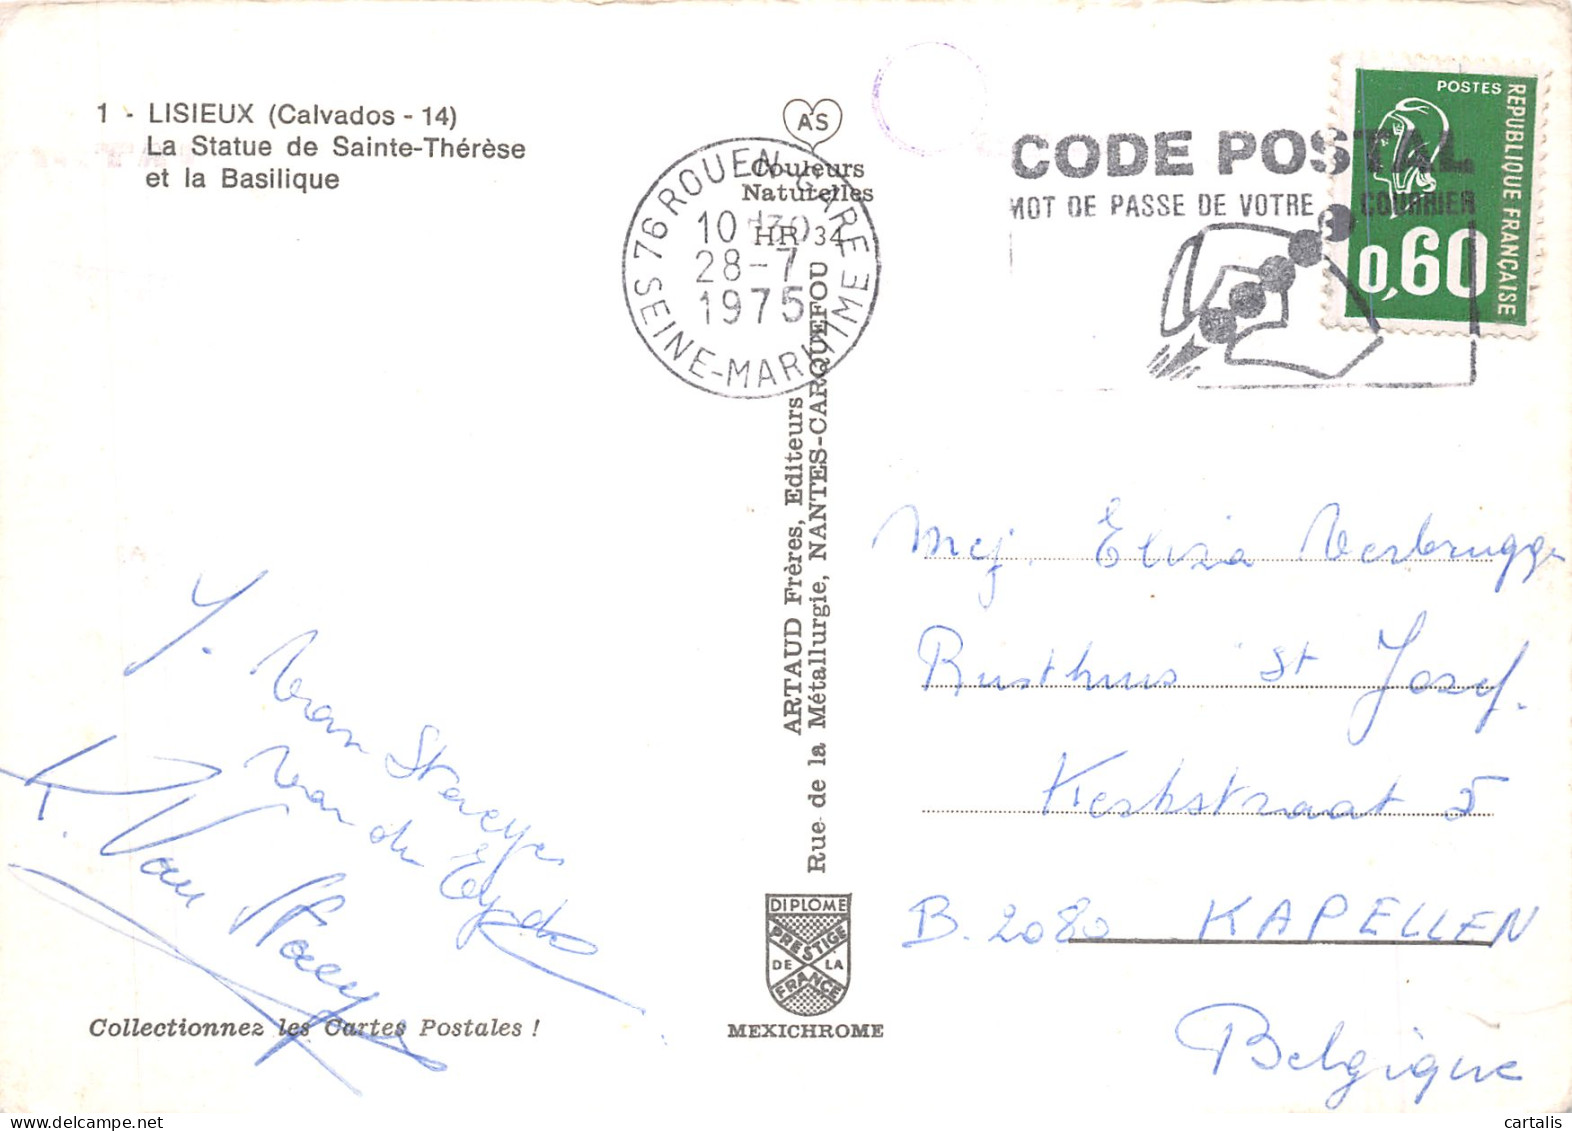 1 - LISIEUX (Calvados - 14)
La Statue de Sainte-Thérèse
et la Basilique
AS
Couleurs
Naturelles
HR 34
76 ROUEN-GARE
10 H30
28-7
1975
SEINE-MARITIME
CODE POSTAL
MOT DE PASSE DE VOTRE COURRIER
POSTES
REPUBLIQUE FRANÇAISE
0,60
ARTAUD Frères, Editeurs
Rue de la Métallurgie, NANTES-CARQUEFOU
Y. Van
K. Van
Mej. Eliza Verbrugge
Rusthuis St Jozef.
Kerkstraat 5
B. 2080 KAPELLEN
Belgique
DIPLOME
PRESTIGE
DE LA
FRANCE
MEXICHROME
Collectionnez les Cartes Postales !
cartalis